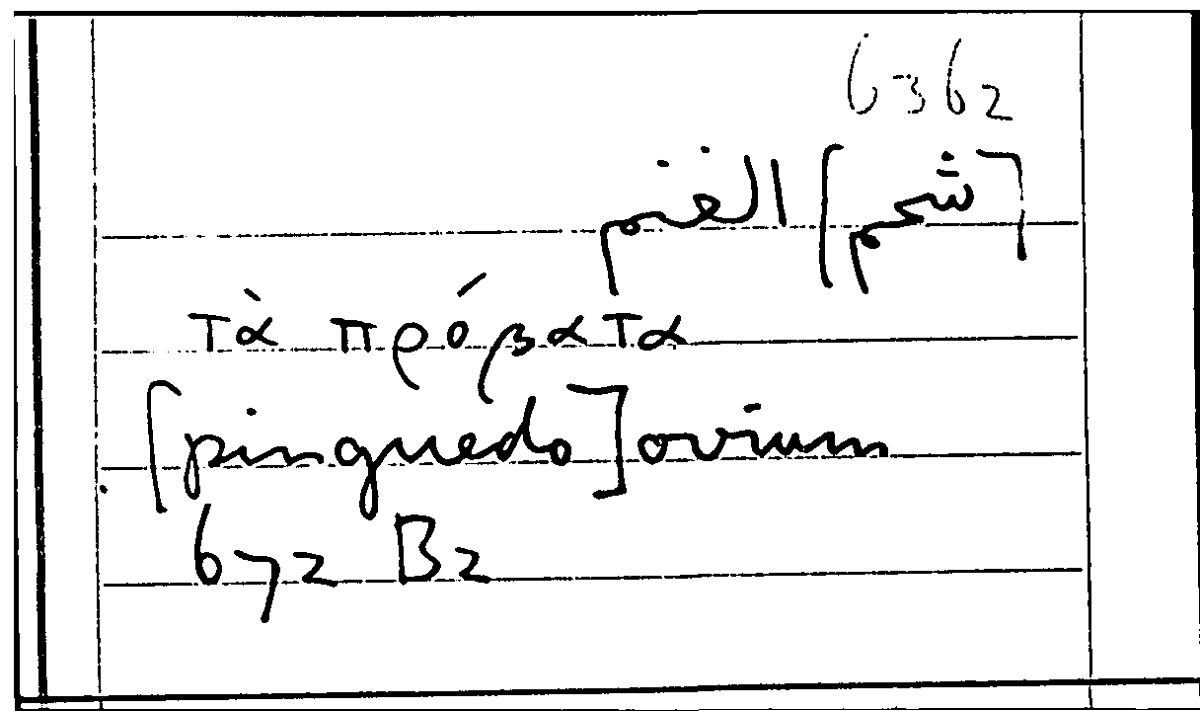 6362
[شحم] الغنم
τὰ πρόβατα
[pinguedo] ovium
672 B2